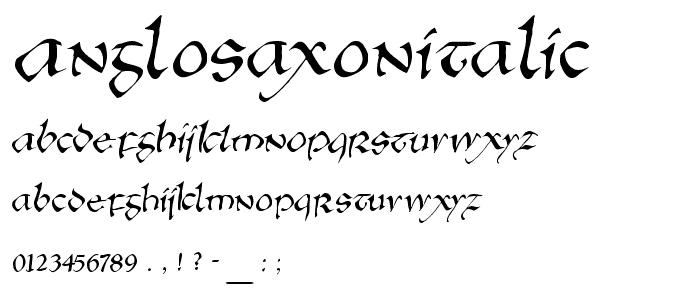 Anglosaxonitalic
abcdefghijklmnopqrstuvwxyz
abcdefghijklmnopqrstuvwxyz
0123456789 . , ! ? - _ : ;